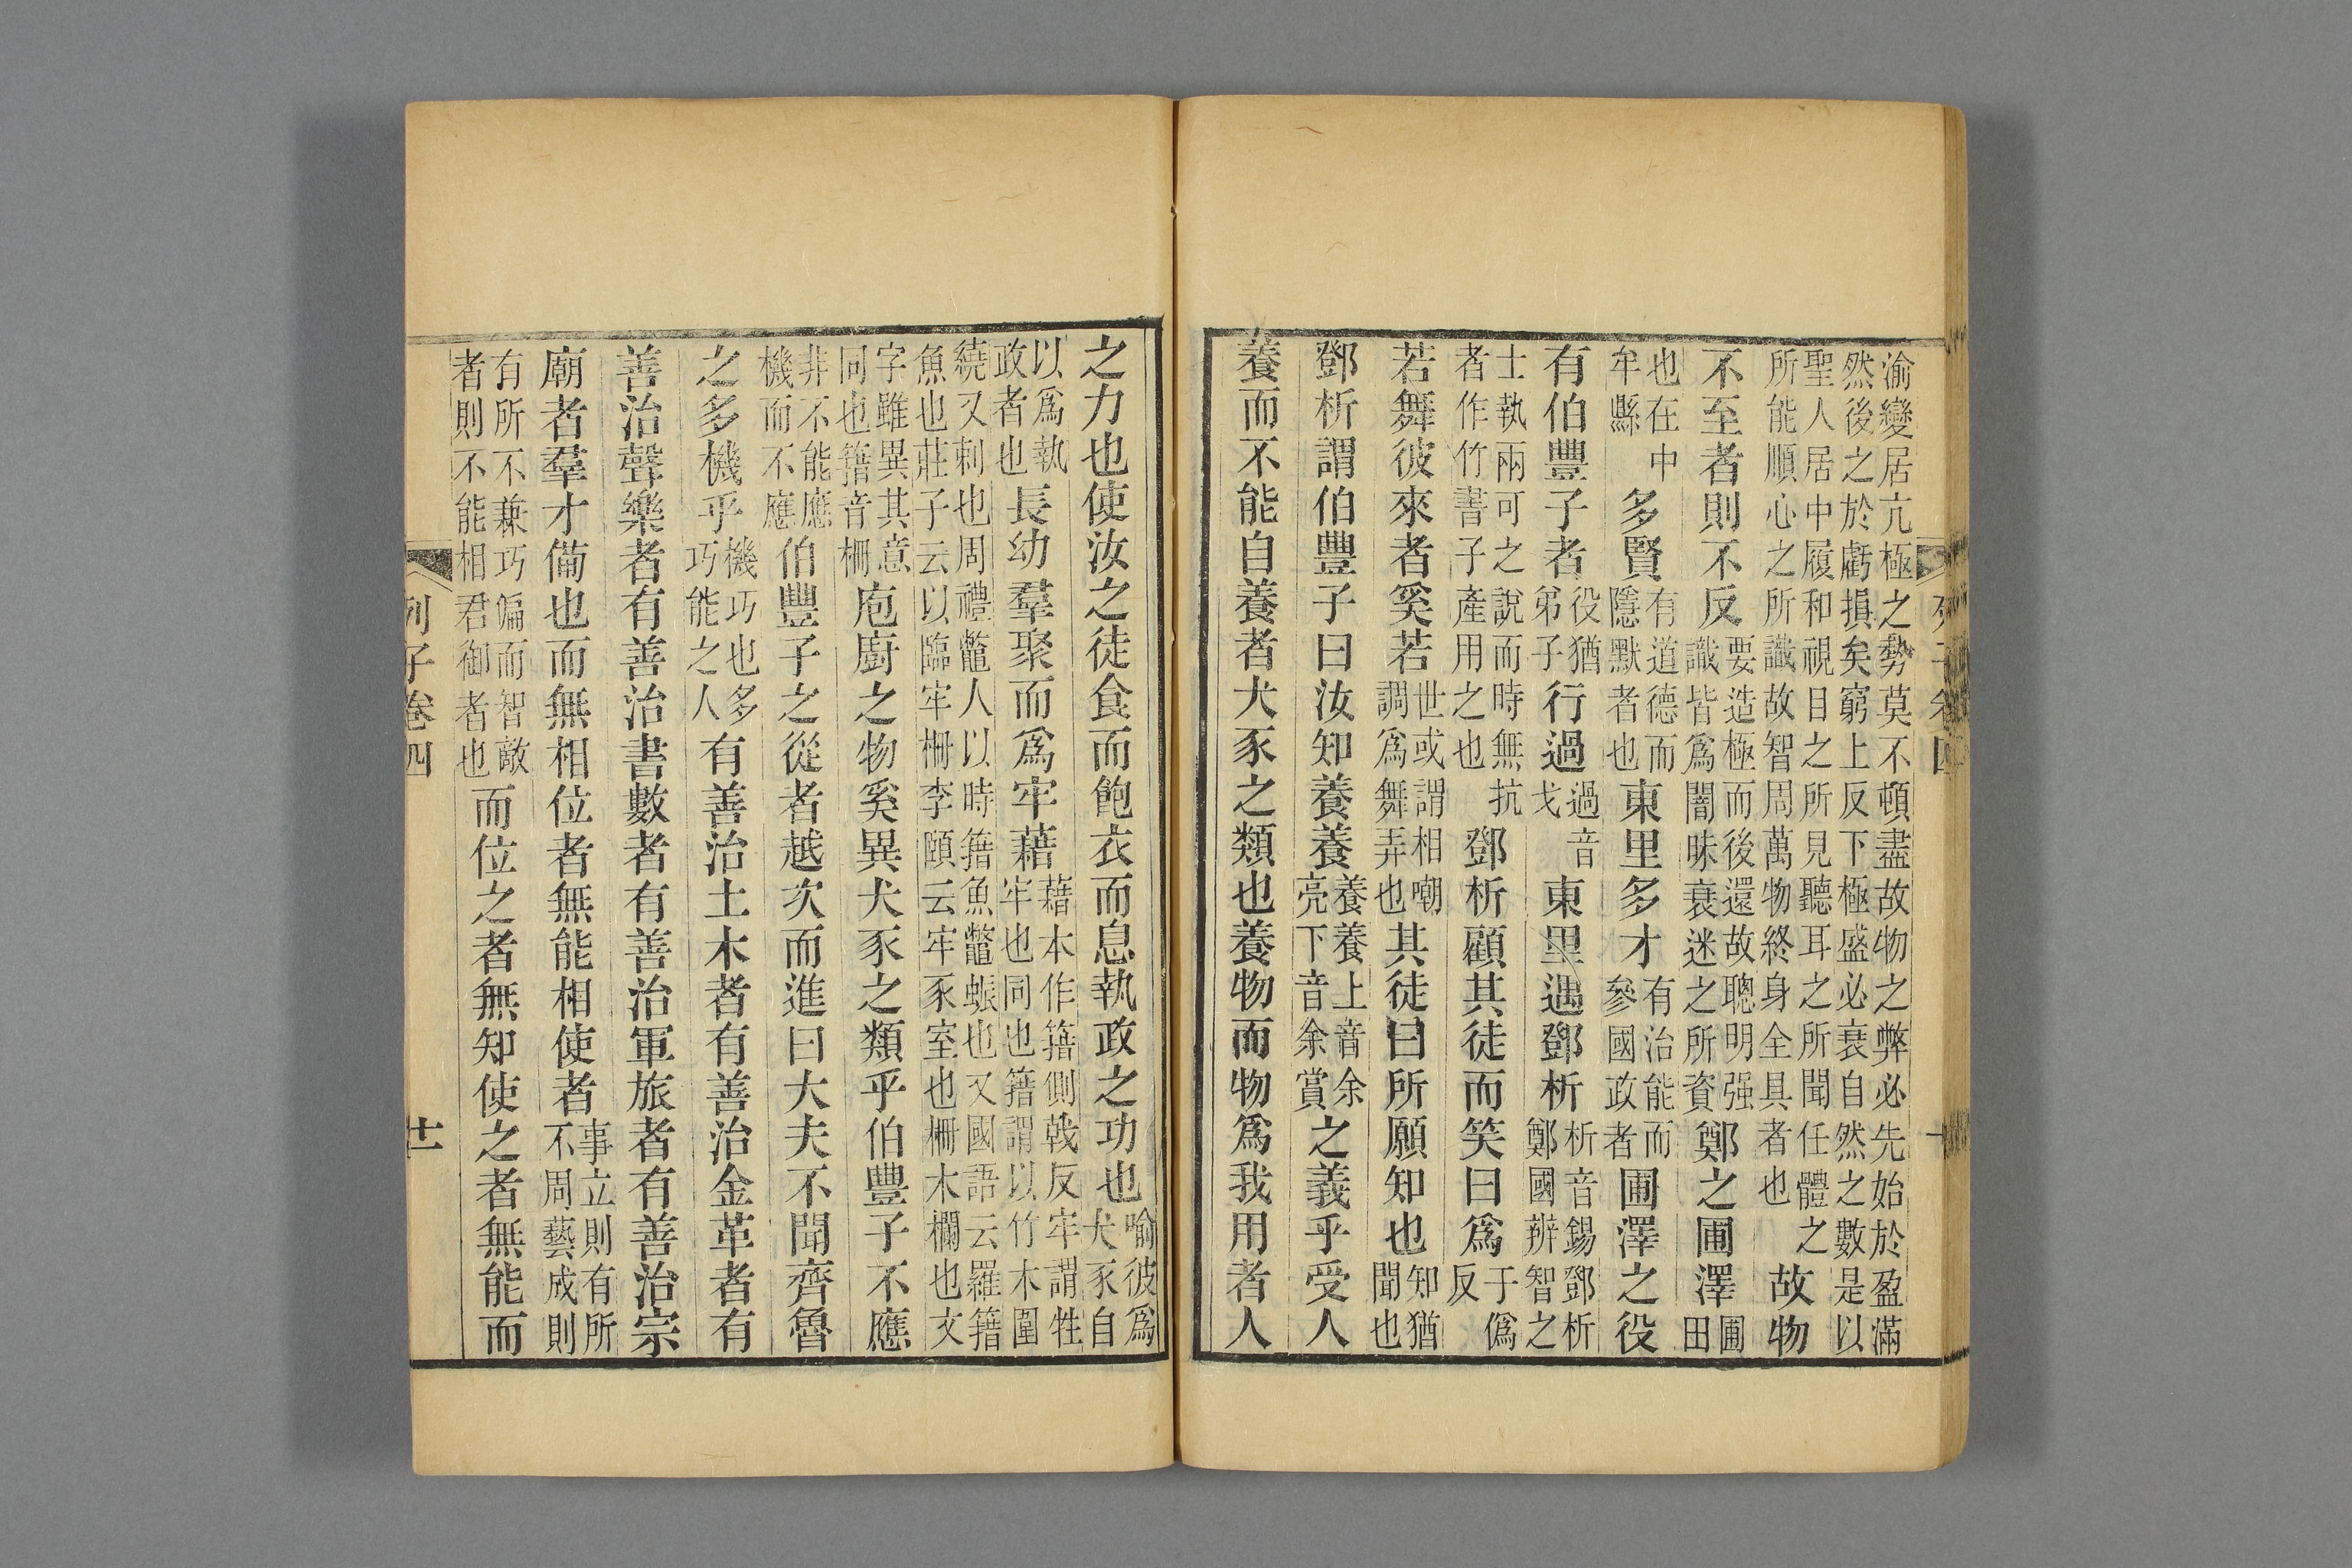 渝變居亢極之勢莫不頓盡故物之弊必先始於盈滿
然後之於虧損矣窮上反下極盛必衰自然之數是以
聖人居中履和視目之所見聽耳之所聞任體之
所能順心之所識故智周萬物終身全具者也故物
不至者則不反要造極而後還故聰明强識皆爲闇昧衰迷之所資鄭之圃澤圃田
也在中牟縣多賢有道德而隱默者也東里多才有治能而參國政者圃澤之役
有伯豐子者役猶弟子行過過音戈東里遇鄧析析音錫鄧析鄭國辨智之
士執兩可之說而時無抗者作竹書子產用之也鄧析顧其徒而笑曰爲于僞反
若舞彼來者奚若世或謂相嘲調爲舞弄也其徒曰所願知也知猶聞也
鄧析謂伯豐子曰汝知養養養養上音余亮下音余賞之義乎受人
養而不能自養者犬豕之類也養物而物爲我用者人
之力也使汝之徒食而飽衣而息執政之功也喻彼爲犬豕自
以爲執政者也長幼羣聚而爲牢藉藉本作籍側戟反牢謂牲牢也同也籍謂以竹木圍
繞又刺也周禮鼈人以時籍魚鼈蜄也又國語云羅籍
魚也莊子云以臨牢柵李頤云牢豕室也柵木欄也文
字雖異其意同也籍音柵庖廚之物奚異犬豕之類乎伯豐子不應
非不能應機而不應伯豐子之從者越次而進曰大夫不聞齊魯
之多機乎機巧也多巧能之人有善治土木者有善治金革者有
善治聲樂者有善治書數者有善治軍旅者有善治宗
廟者羣才備也而無相位者無能相使者事立則有所不周藝成則
有所不兼巧偏而智敵者則不能相君御者也而位之者無知使之者無能而
列子卷四
十一